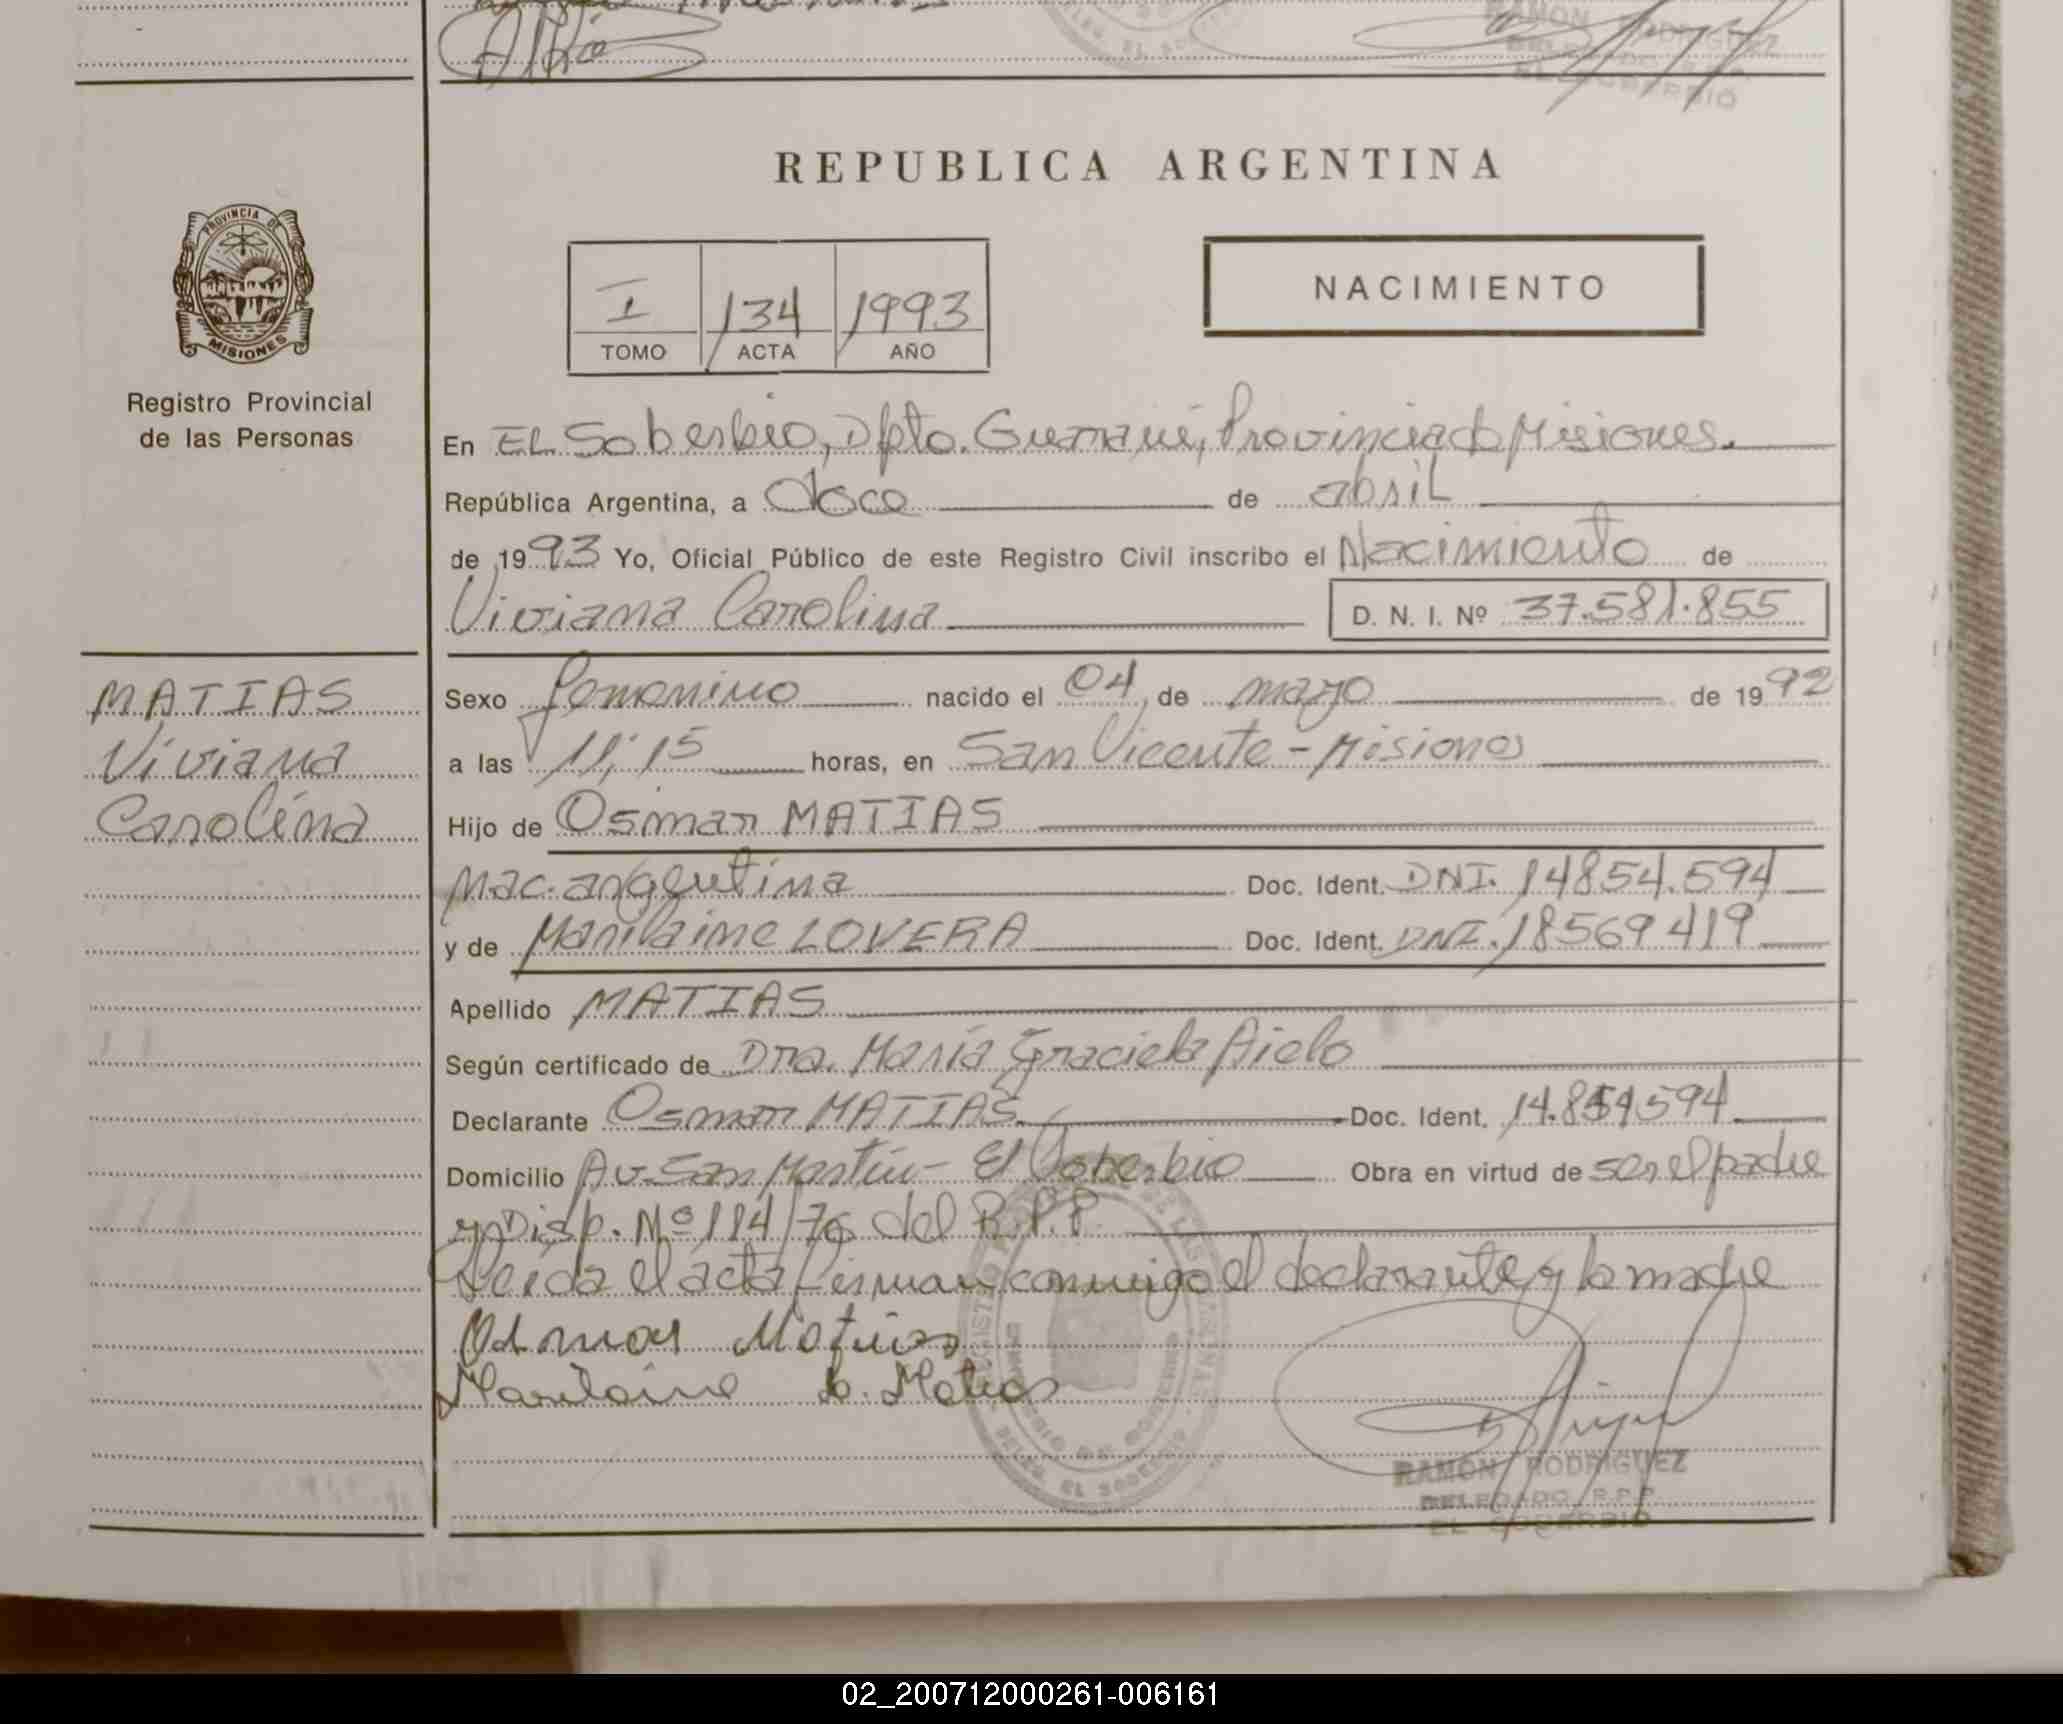 RAMON RODRIGUEZ
DELEGADO R.P.P.
EL SOBERBIO
REPUBLICA ARGENTINA
PROVINCIA DE
MISIONES
Registro Provincial
de las Personas
I 134 1993
TOMO ACTA AÑO
NACIMIENTO
En EL Soberbio, Dpto. Guaraní, Provincia de Misiones.
República Argentina, a doce de abril
de 1993 Yo, Oficial Público de este Registro Civil inscribo el Nacimiento de
Viviana Carolina D. N. I. Nº 37.581.855
MATIAS
Viviana
Carolina
Sexo femenino nacido el 04 de mayo de 1992
a las 11,15 horas, en San Vicente - Misiones
Hijo de Osmar MATIAS
Nac. argentina Doc. Ident. DNI. 14854.594
y de Marilaine LOVERA Doc. Ident. DNI. 18569419
Apellido MATIAS
Según certificado de Dra. María Graciela Aielo
Declarante Osmar MATIAS. Doc. Ident. 14.854594
Domicilio Av. San Martín - El Soberbio Obra en virtud de ser el padre
y Disp. Nº 114/76 del R.P.P.
Leída el acta firman conmigo el declarante y la madre
Osmar Matias
Marilaine L. Matias
EL SOBERBIO
RAMON RODRIGUEZ
DELEGADO R.P.P.
EL SOBERBIO
02_200712000261-006161